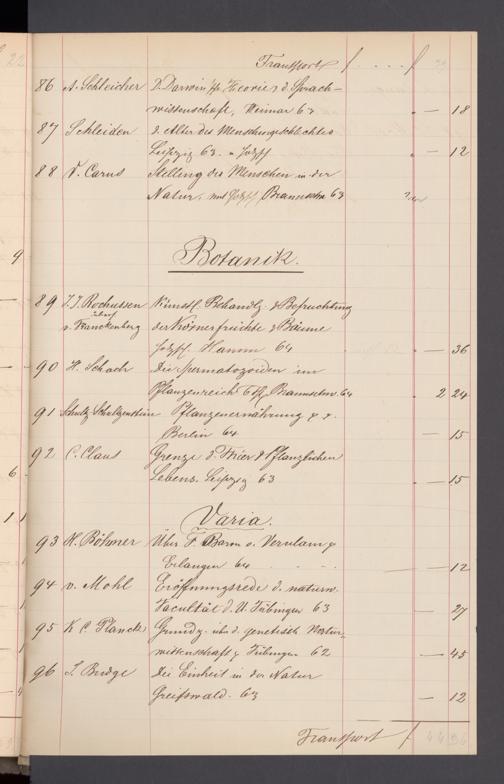 Transport f . . . . f
86 A. Schleicher D. Darwin'sche Theorie & d. Sprach-
wissenschaft, Weimar 63 . — 18
87 Schleiden D. Alter des Menschengeschlechtes
Leipzig 63. m Holzsch . — 12
88 V. Carus Stellung des Menschen in der
Natur, mit Holzsch, Braunschw 63
Botanik.
89 J. J. Rochussen Künstl. Behandlg. & Befruchtung
übers
v. Franckenberg der Körnerfrüchte & Bäume
Holzsch. Hamm 64 . — 36
90 H. Schacht Die Spermatozoiden im
Pflanzenreich 6 Tfl. Braunschw. 64 . 2 24
91 Schultz Schultzenstein Pflanzenernährung &.
Berlin 64 — 15
92 C. Claus Grenze d. Thier & Pflanzlichen
Lebens. Leipzig 63 . — 15
Varia.
93 H. Böhmer Über F. Bacon v. Verulam &
Erlangen 64 — 12
94 v. Mohl Eröffnungsrede d. naturw.
Facultät d. U. Tübingen 63 — 27
95 K. C. Planck Grundz. üb. d. genetisch Natur-
wissenschaft & Tübingen 62 — 45
96 J. Budge Die Einheit in der Natur
Greifswald. 63 — 12
Transport f